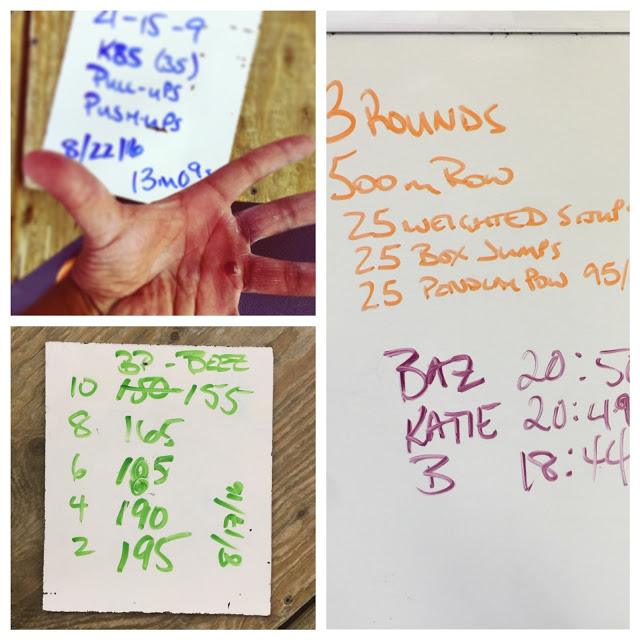 21-15-9
KBS (35)
PULL-UPS
PUSH-UPS
8/22/16
13m09s
BP - BEEZ
10 150 155
8 165
6
4 190
2 195
8/17/16
3 ROUNDS
500m ROW
25 WEIGHTED SITUPS
25 BOX JUMPS
25 PENDLAY ROW 95/
BAZ 20:50
KATIE 20:49
B 18:44